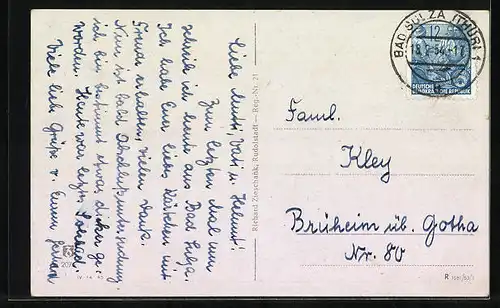 Liebe Mutti, Vati u. Helmut!
Zum letzten Mal nun
schreib ich heute aus Bad Sulza.
Ich habe Eure liebe Kärtchen mit
Freude erhalten, vielen Dank.
Nun ist bald Abschlußuntersuchung.
ich bin bestimmt etwas dicker ge-
worden. Heute war letztes Solebad.
Viele liebe Grüße v. Eurem
Richard Zieschank, Rudolstadt — Reg.-Nr. 21
BAD SULZA (THÜR) 1
18.2.54.-17
12
DEUTSCHE
DEMOKRATISCHE REPUBLIK
Faml.
Kley
Brüheim üb. Gotha
Nr. 80